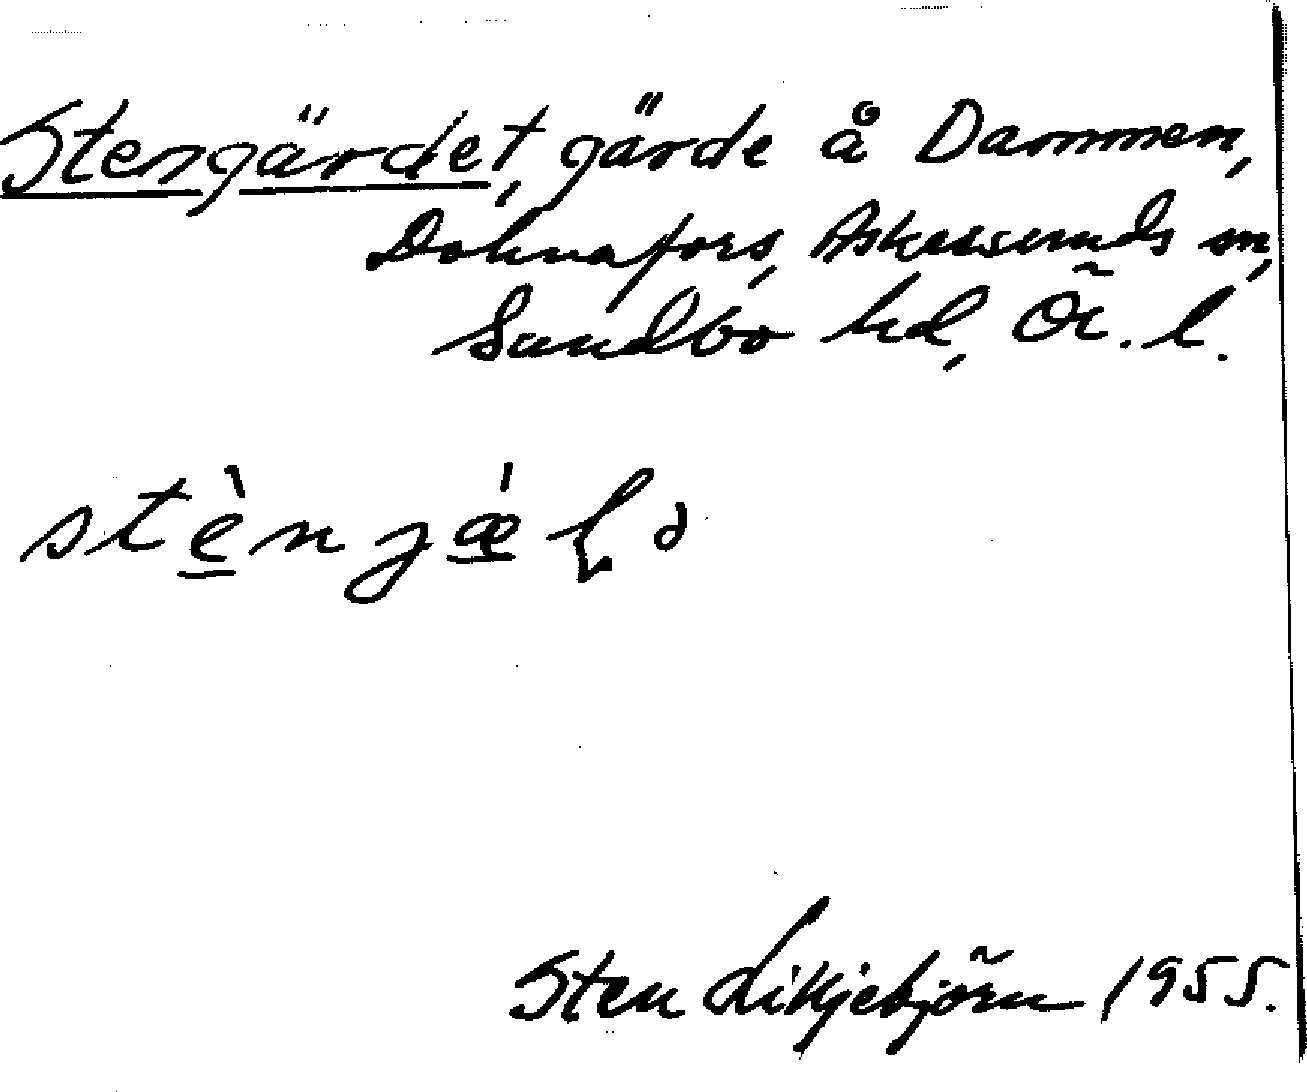 Stengärdet, gärde å Dammen,
Dohnafors, Askersunds sn,
Sundbo hd, Ör. l.
stèngǽ
Sten Liljebjörn 1955.